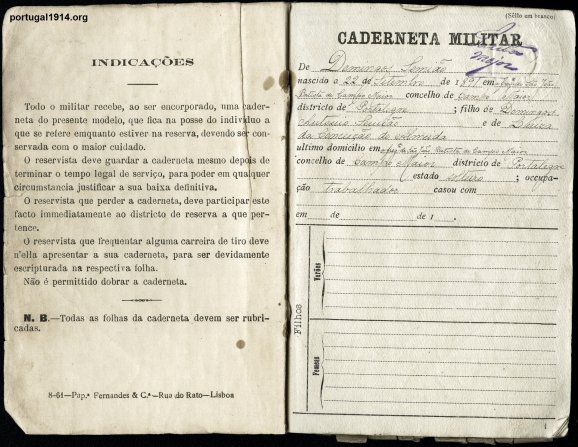 portugal1914.org
INDICAÇÕES
Todo o militar recebe, ao ser encorporado, uma cader-
neta do presente modelo, que fica na posse do individuo a
que se refere emquanto estiver na reserva, devendo ser con-
servada com o maior cuidado.
O reservista deve guardar a caderneta mesmo depois de
terminar o tempo legal de serviço, para poder em qualquer
circumstancia justificar a sua baixa definitiva.
O reservista que perder a caderneta, deve participar este
facto immediatamente ao districto de reserva a que per-
tence.
O reservista que frequentar alguma carreira de tiro deve
n'ella apresentar a sua caderneta, para ser devidamente
escripturada na respectiva folha.
Não é permittido dobrar a caderneta.
N. B.—Todas as folhas da caderneta devem ser rubri-
cadas.
8-61—Pap.ª Fernandes & C.ª—Rua do Rato—Lisboa
(Sêllo em branco)
CADERNETA MILITAR
De Domingos
nascido a 22 de Setembro de 1891 em
Baptista de Campo Maior concelho de Campo Maior
districto de Portalegre; filho de Domingos
e de
da Conceição de Almeida
ultimo domicilio em Baptista de Campo Maior
concelho de Campo Maior districto de Portalegre
estado solteiro; occupa-
ção trabalhador casou com
em de de 1 .
Filhos
Varões
Femeas
1